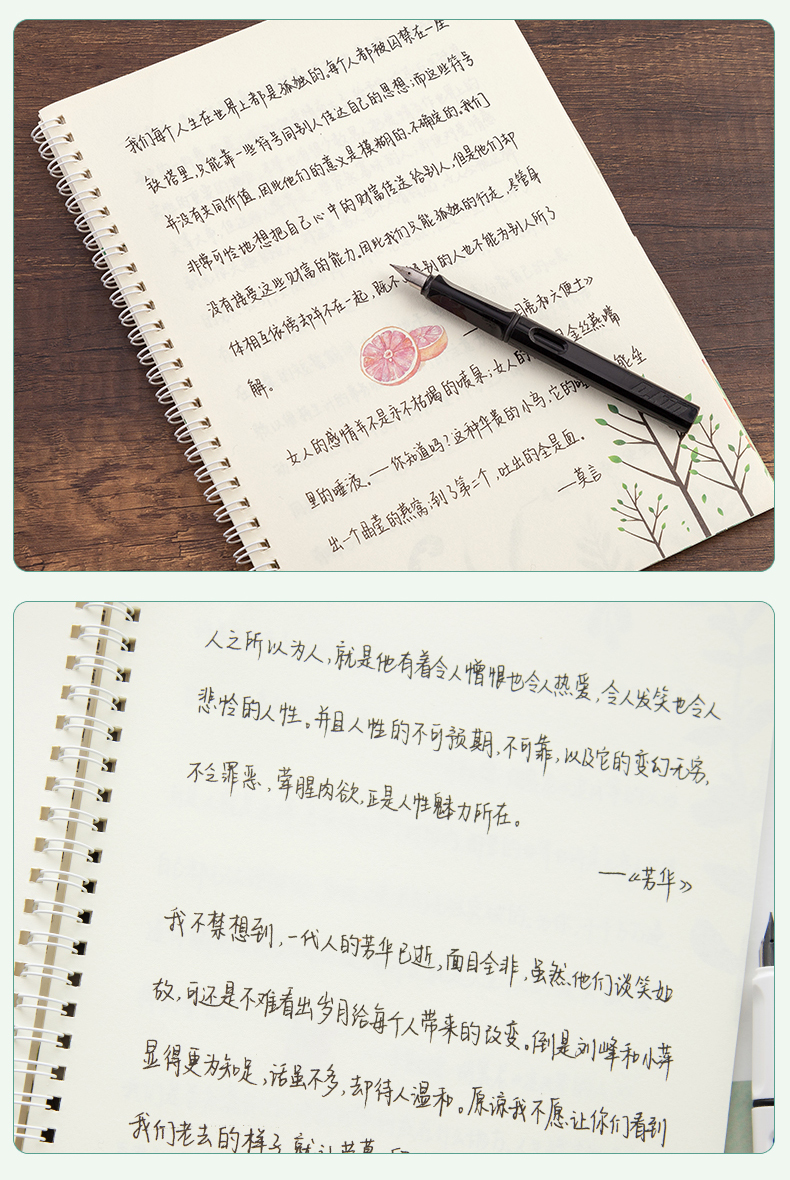 我们每个人生在世界上都是孤独的。每个人都被囚禁在一座
铁塔里，只能靠一些符号同别人传达自己的思想；而这些符号
并没有共同价值，因此他们的意义是模糊的、不确定的。我们
非常可怜地想把自己心中的财富传送给别人，但是他们却
没有接受这些财富的能力。因此我们只能孤独的行走，尽管身
体相互依傍却并不在一起，既不 别的人也不能为别人所了
解。
月亮和六便士》
女人的感情并不是永不枯竭的喷泉；女人的 金丝燕嘴
里的唾液。—你知道吗？这种华贵的小鸟，它的唾 能坐
出一个晶莹的燕窝；到了第二个，吐出的全是血。
—莫言
人之所以为人，就是他有着令人憎恨也令人热爱，令人发笑也令人
悲怜的人性。并且人性的不可预期，不可靠，以及它的变幻无穷，
不仑罪恶，荤腥肉欲，正是人性魅力所在。
—《芳华》
我不禁想到，一代人的芳华已逝，面目全非，虽然他们谈笑如
故，可还是不难看出岁月给每个人带来的改变。倒是刘峰和小萍
显得更为知足，话虽不多，却待人温和。原谅我不愿让你们看到
我们老去的样子，就让